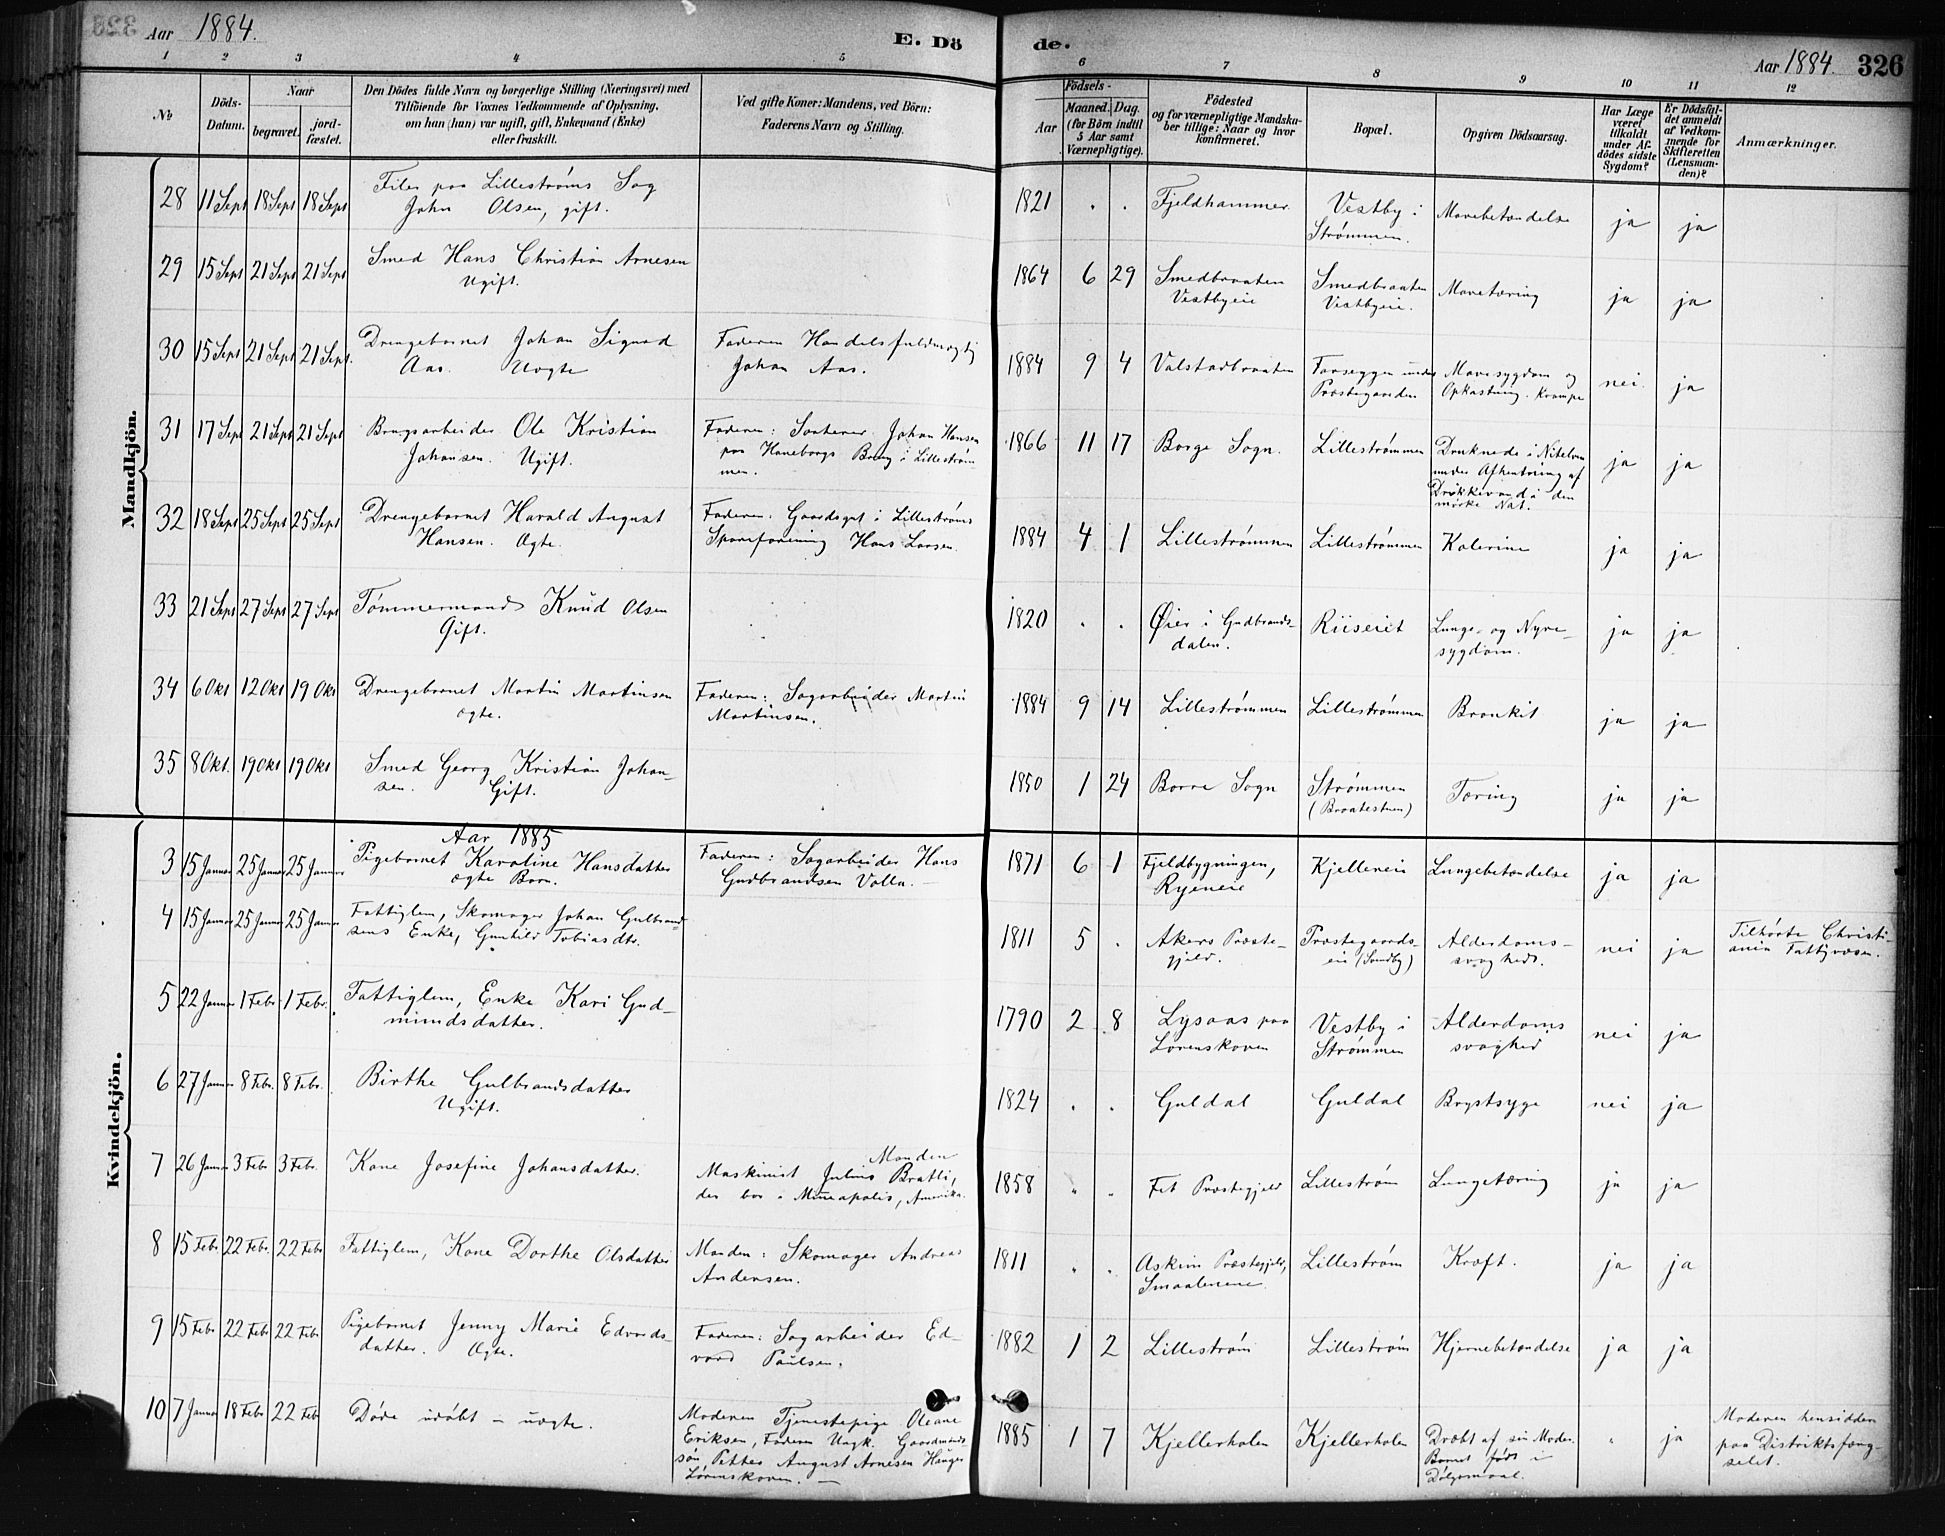 Aar 1884.
E. Dö
de.
Aar 1884. 326
1 2 3 4 5
6 7 8 9 10 11 12
No
Döds-
Datum.
Naar
begravet.
jord-
fæstet.
Den Dödes fulde Navn og borgerlige Stilling (Næringsvei) med
Tilföiende for Voxnes Vedkommende af Oplysning,
om han (hun) var ugift, gift, Enkemand (Enke)
eller fraskilt.
Ved gifte Koner: Mandens, ved Börn:
Faderens Navn og Stilling.
Födsels-
Aar
Maaned. Dag.
(for Börn indtil
5 Aar samt
Værnepligtige).
Födested
og for værnepligtige Mandska-
ber tillige: Naar og hvor
konfirmeret.
Bopæl.
Opgiven Dödsaarsag.
Har Læge
været
tilkaldt
under Af-
dödes sidste
Sygdom?
Er Dödsfal-
det anmeldt
af Vedkom-
mende for
Skifteretten
(Lensman-
den)?
Anmærkninger.
Mandkjön.
28 11 Sept 18 Sept 18 Sept Filer paa Lillestrøms Sag
John Olsen, gift.
1821 Fjeldhammer Vestby i
Strømmen. Mavebetændelse ja ja
29 15 Sept 21 Sept 21 Sept Smed Hans Christian Arnesen
Ugift.
1864 6 29 Smedbraaten
Vestbyeie Smedbraaten
Vestbyeie. Mavetæring ja ja
30 15 Sept 21 Sept 21 Sept. Drengebarnet Johan Sigurd
Aas. Uægte
Faderen Handelsfuldmægtig
Johan Aas.
1884 9 4 Valstadbraaten under
Præstegaarden Mavesygdom og
Opkastning. Krampe nei. ja
31 17 Sept 21 Sept 21 Sept Brugsarbeider Ole Kristian
Johansen. Ugift.
Faderen: Johan Hansen
paa Haneborgs Brug i Lillestrøm
men.
1866 11 17 Borge Sogn. Lillestrømmen Druknede i Nitelven
under Afhentning af
Drikkevand i den
mørke Nat. ja ja
32 18 Sept 25 Sept 25 Sept Drengebarnet Harald August
Hansen. Ægte.
Faderen: Gaardsgut i Lillestrøms
Spareforening Hans Larsen.
1884 4 1 Lillestrømmen Lillestrømmen Kolerine ja ja
33 21 Sept 27 Sept 27 Sept Tømmermand Knud Olsen
Gift.
1820 Øier i Gudbrands-
dalen. Riiseiet Lunge- og Nyre-
sygdom. ja ja
34 6 Okt 12 Okt 19 Okt Drengebarnet Martin Martinsen
ægte.
Faderen: Sagarbeider Martin
Martinsen.
1884 9 14 Lillestrømmen Lillestrømmen Bronkit ja ja
35 8 Okt. 19 Okt 19 Okt Smed Georg Kristian Johan-
sen. Gift.
1850 1 24 Borre Sogn Strømmen
(Braatestuen) Tæring ja ja
Kvindekjön.
Aar 1885
3 15 Januar 25 Januar 25 Januar Pigebarnet Karoline Hansdatter
ægte Barn.
Faderen: Sagarbeider Hans
Gudbrandsen Volla. —
1871 6 1 Fjeldbygningen,
Ryeneie Kjellereie Lungebetændelse ja ja
4 15 Januar 25 Januar 25 Januar Fattiglem, Skomager Johan Gulbrand-
sens Enke, Gunhild Tobiasdtr.
1811 5 . Akers Præste-
gjeld. Præstegaards-
eie (Sundby) Alderdoms-
svaghed. nei ja Tilhørte Christi-
ania Fattigvæsen.
5 22 Januar 1 Febr. 1 Febr. Fattiglem, Enke Kari Gud-
mundsdatter.
1790 2 8 Lysaas paa
Lørenskoven Vestby i
Strømmen Alderdoms
svaghed nei ja
6 27 Januar 8 Febr. 8 Febr. Birthe Gulbrandsdatter
Ugift.
1824 Guldal Guldal Brystsyge nei ja
7 26 Januar 3 Febr 3 Febr. Kone Josefine Johansdatter.
Manden
Maskinist Julius Bratli,
der bor i Mineapolis, Amerika.
1858 " " Fet Præstegjeld Lillestrøm Lungetæring ja ja
8 15 Febr. 22 Febr. 22 Febr Fattiglem, Kone Dorthe Olsdatter
Manden: Skomager Andreas
Andersen.
1811 Askim Præstegjeld,
Smaalenene. Lillestrøm Kræft. ja ja
9 15 Febr 22 Febr 22 Febr. Pigebarnet Jenny Marie Edvards-
datter. Ægte.
Faderen: Sagarbeider Ed-
vard Paulsen.
1882 1 2 Lillestrøm Lillestrøm Hjernebetændelse ja ja
10 7 Januar 18 Febr 22 Febr Døde udøbt — uægte.
Moderen Tjenestepige Oleane
Eriksen, Faderen Ungk. Gaardmands-
søn, Petter August Arnesen Hauger
Lørenskoven. —
1885 1 7 Kjellerholen Kjellerholen Dræbt af sin Moder.
Barnet født i
Dølgsmaal. " ja Moderen hensidder
paa Distriktsfæng-
selet.